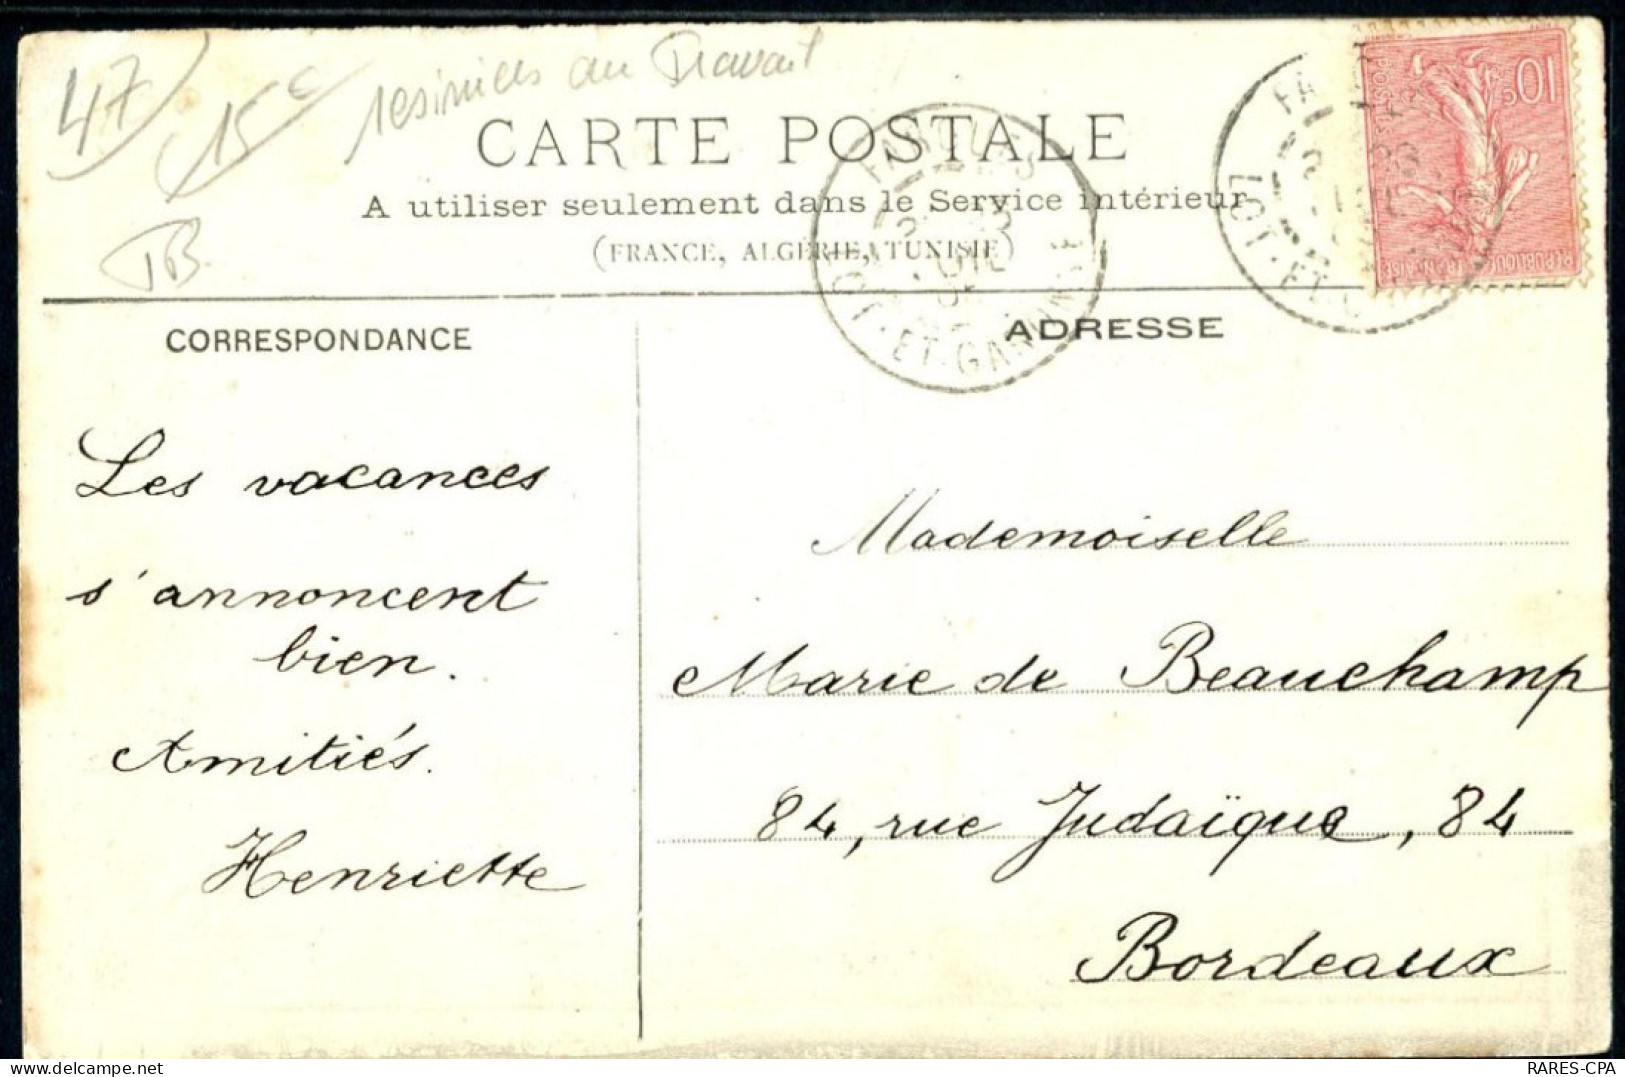 47
15 c
résiniers au Travail
TB
CARTE POSTALE
A utiliser seulement dans le Service intérieur
(FRANCE, ALGÉRIE, TUNISIE)
LOT-ET-GARONNE
10c
POSTES
REPUBLIQUE FRANÇAISE
CORRESPONDANCE
Les vacances
s'annoncent
bien.
Amitiés.
Henriette
ADRESSE
Mademoiselle
Marie de Beauchamp
84, rue Judaïque, 84
Bordeaux
RARES-CPA